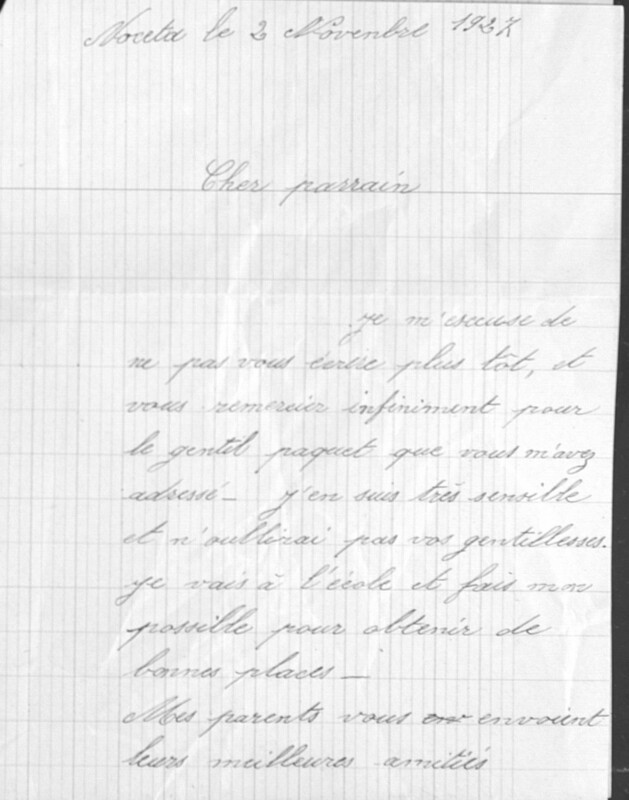 Noceta le 2 Novenbre 1927
Cher parrain
je m'escuse de
ne pas vous écrire plus tôt, et
vous remercier infiniment pour
le gentil paquet que vous m'avez
adressé_ j'en suis très sensible
et n'oublirai pas vos gentillesses.
je vais à l'école et fais mon
possible pour obtenir de
bonnes places_
Mes parents vous env envoient
leurs meilleures amitiés